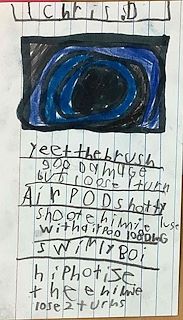 Chris.D
yeet the brush
900 Damage
but loose 1 turn
AIRPOD shotty
shoote himnie 1use
with airpod 108DMG
swirly Boi
hiphotise
the enimie
lose 2 turns